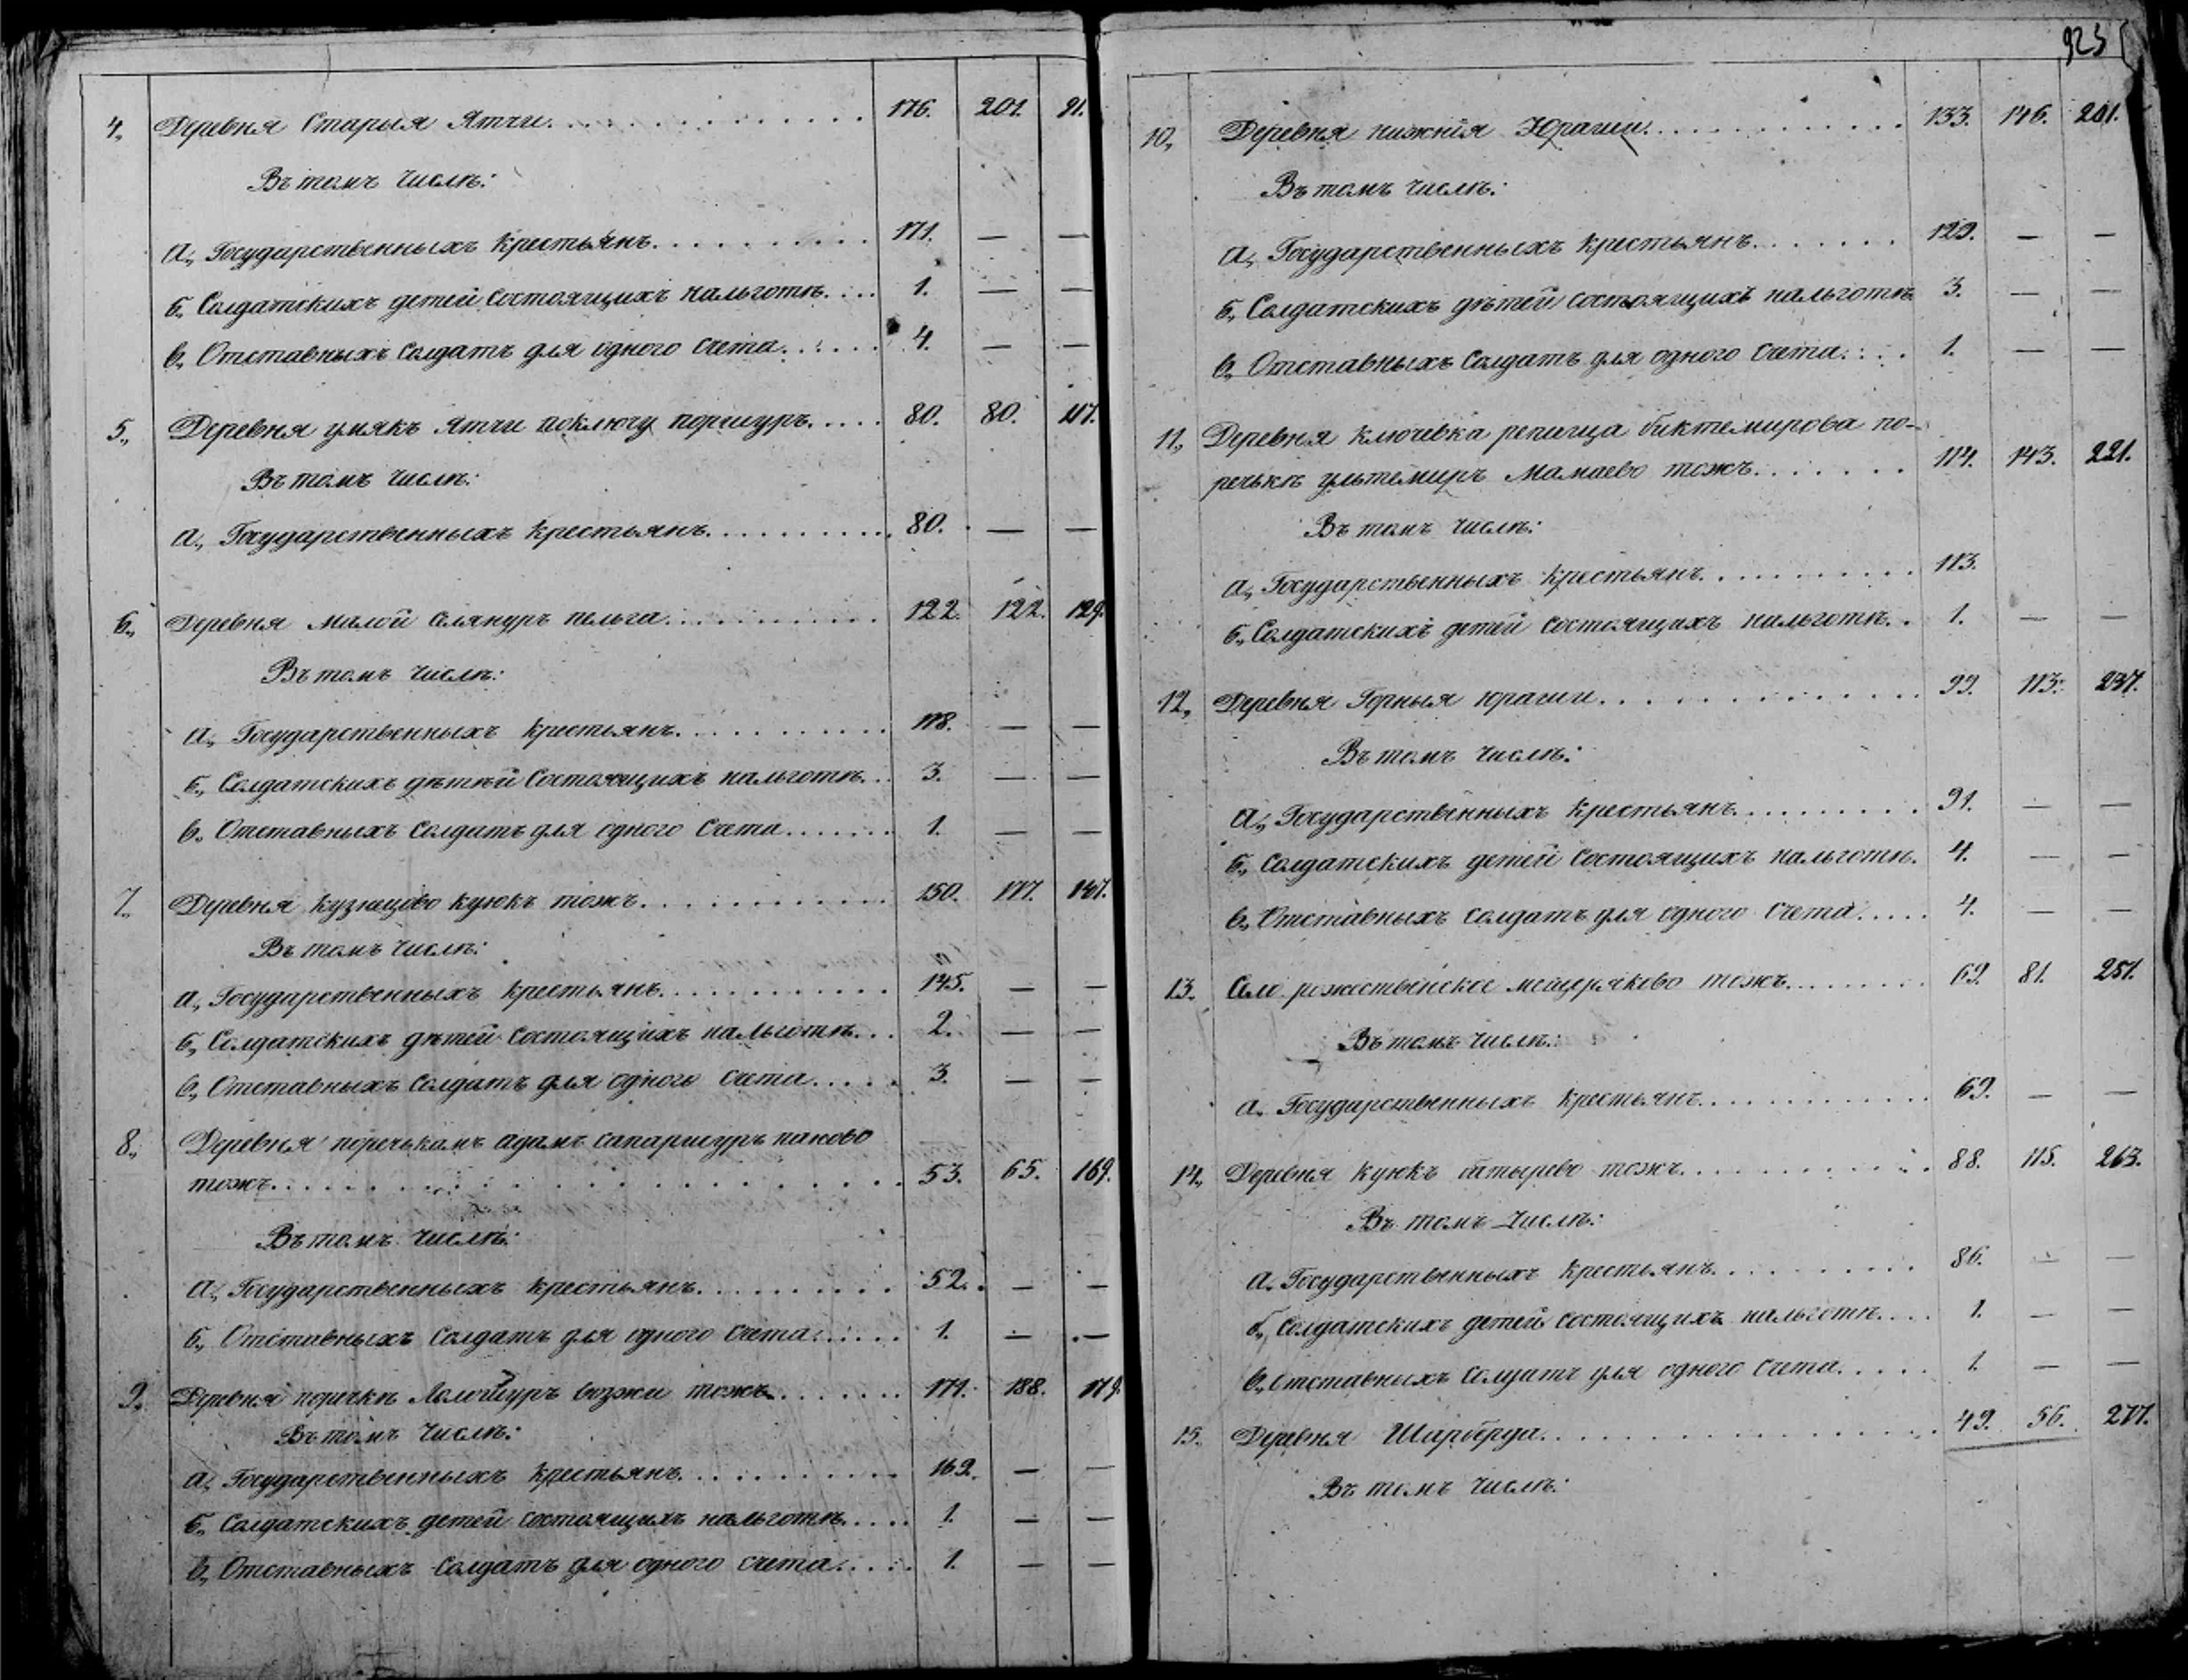 4., Деревня Старыя Ятчи 176. 201. 91.
Въ томъ числѣ:
а., Государственныхъ крестьянъ 171. — —
б., Солдатскихъ детей состоящихъ нальготѣ 1. — —
в., Отставныхъ солдатъ для одного счета 4. — —
5., Деревня умякъ Ятчи поключу поршуръ 80. 80. 117.
Въ томъ числѣ:
а., Государственныхъ крестьянъ 80. — —
6., Деревня малой салянуръ пельга 122. 122. 129.
Въ томъ числѣ:
а., Государственныхъ крестьянъ 118. — —
б., Солдатскихъ дѣтѣй состоящихъ нальготѣ 3. — —
в., Отставныхъ солдатъ для одного счета 1. — —
7., Деревня кузнецово куюкъ тожъ 150. 177. 147.
Въ томъ числѣ:
а., Государственныхъ крестьянъ 145. — —
б., Солдатскихъ дѣтей состоящихъ нальготѣ 2. — —
в., Отставныхъ солдатъ для одного счета 3. — —
8., Деревня поречькамъ адамъ сапаршуръ паново
тожъ 53. 65. 169.
Въ томъ числѣ:
а., Государственныхъ крестьянъ 52. — —
б., Отставныхъ солдатъ для одного счета 1. — —
9., Деревня поречкѣ Лолошуръ возжи тожъ 171. 188. 179.
Въ томъ числѣ:
а., Государственныхъ крестьянъ 169. — —
б., Солдатскихъ детей состоящихъ нальготѣ 1. — —
в., Отставныхъ солдатъ для одного счета 1. — —
923
10., Деревня нижнія Юраши 133. 146. 201.
Въ томъ числѣ:
а., Государственныхъ крестьянъ 129. — —
б., Солдатскихъ дѣтей состоящихъ нальготѣ 3. — —
в., Отставныхъ солдатъ для одного счета 1. — —
11., Деревня ключевка репища биктемирова по-
речькѣ ультемиръ Мамаево тожъ 114. 143. 221.
Въ томъ числѣ:
а., Государственныхъ крестьянъ 113.
б., Солдатскихъ детей состоящихъ нальготѣ 1. — —
12., Деревня Горныя юраши 99. 113. 237.
Въ томъ числѣ:
а., Государственныхъ крестьянъ 91. — —
б., Солдатскихъ детей состоящихъ нальготѣ 4. — —
в., Отставныхъ солдатъ для одного счета 4. — —
13., Село рожественское мещеряково тожъ 69. 81. 251.
Въ томъ числѣ:
а., Государственныхъ крестьянъ 69. — —
14., Деревня куюкъ батырево тожъ 88. 115. 263.
Въ томъ числѣ:
а., Государственныхъ крестьянъ 86. — —
б., Солдатскихъ детей состоящихъ нальготѣ 1. — —
в., Отставныхъ солдатъ для одного счета 1. — —
15., Деревня Шарберда 49. 56. 277.
Въ томъ числѣ: